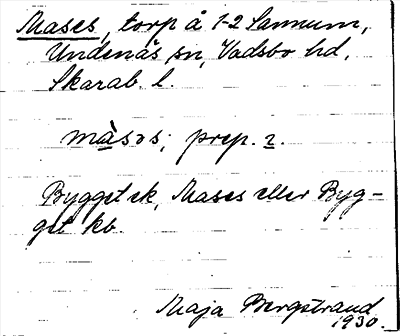 Mases, torp å 1-2 Sannum,
Undenäs sn, Vadsbo hd,
Skarab. l.
màsɜs; prep. 2.
Bygget ek, Mases eller Byg-
get kb.
Maja Bergstrand
1930.